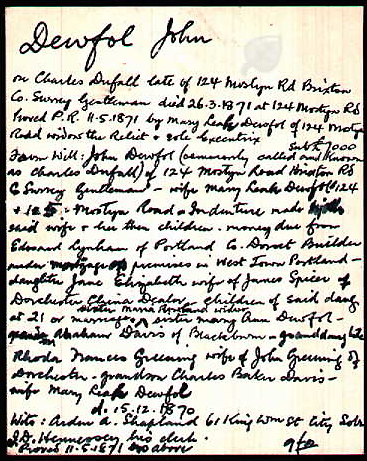 Dewfol John
or Charles Dufall late of 124 Mostyn Rd Brixton
Co. Surrey Gentleman died 26.3.1871 at 124 Mostyn Rd
Proved P.R. 11.5.1871 by Mary Leah Dewfol of 124 Mostyn
Road widow the Relict & sole Executrix
Sub £ 7000
From Will: John Dewfol (commonly called and known
as Charles Dufall) of 124 Mostyn Road Brixton Rd
Co Surrey Gentleman - wife Mary Leah Dewfol 124
Mostyn Road & Indenture made
said wife & her then children - money due from
Edward Lynham of Portland Co. Dorset Builder
under mortgage of premises in West Town Portland -
daughter Jane Elizabeth wife of James Spicer of
Dorchester China Dealer - children of said daug
sister Maria Rowland widow
at 21 or marriage, sister Mary Ann Dewfol -
Abraham Davis of Blackburn - granddaughter
Rhoda Frances Greening wife of John Greening of
Dorchester - grandson Charles Baker Davis -
wife Mary Leah Dewfol
d. 15.12.1870
Wits: Arden A. Shapland 61 King Wm St City Solr
J.D. Hennessey his clerk.
Proved 11.5.1871 as above